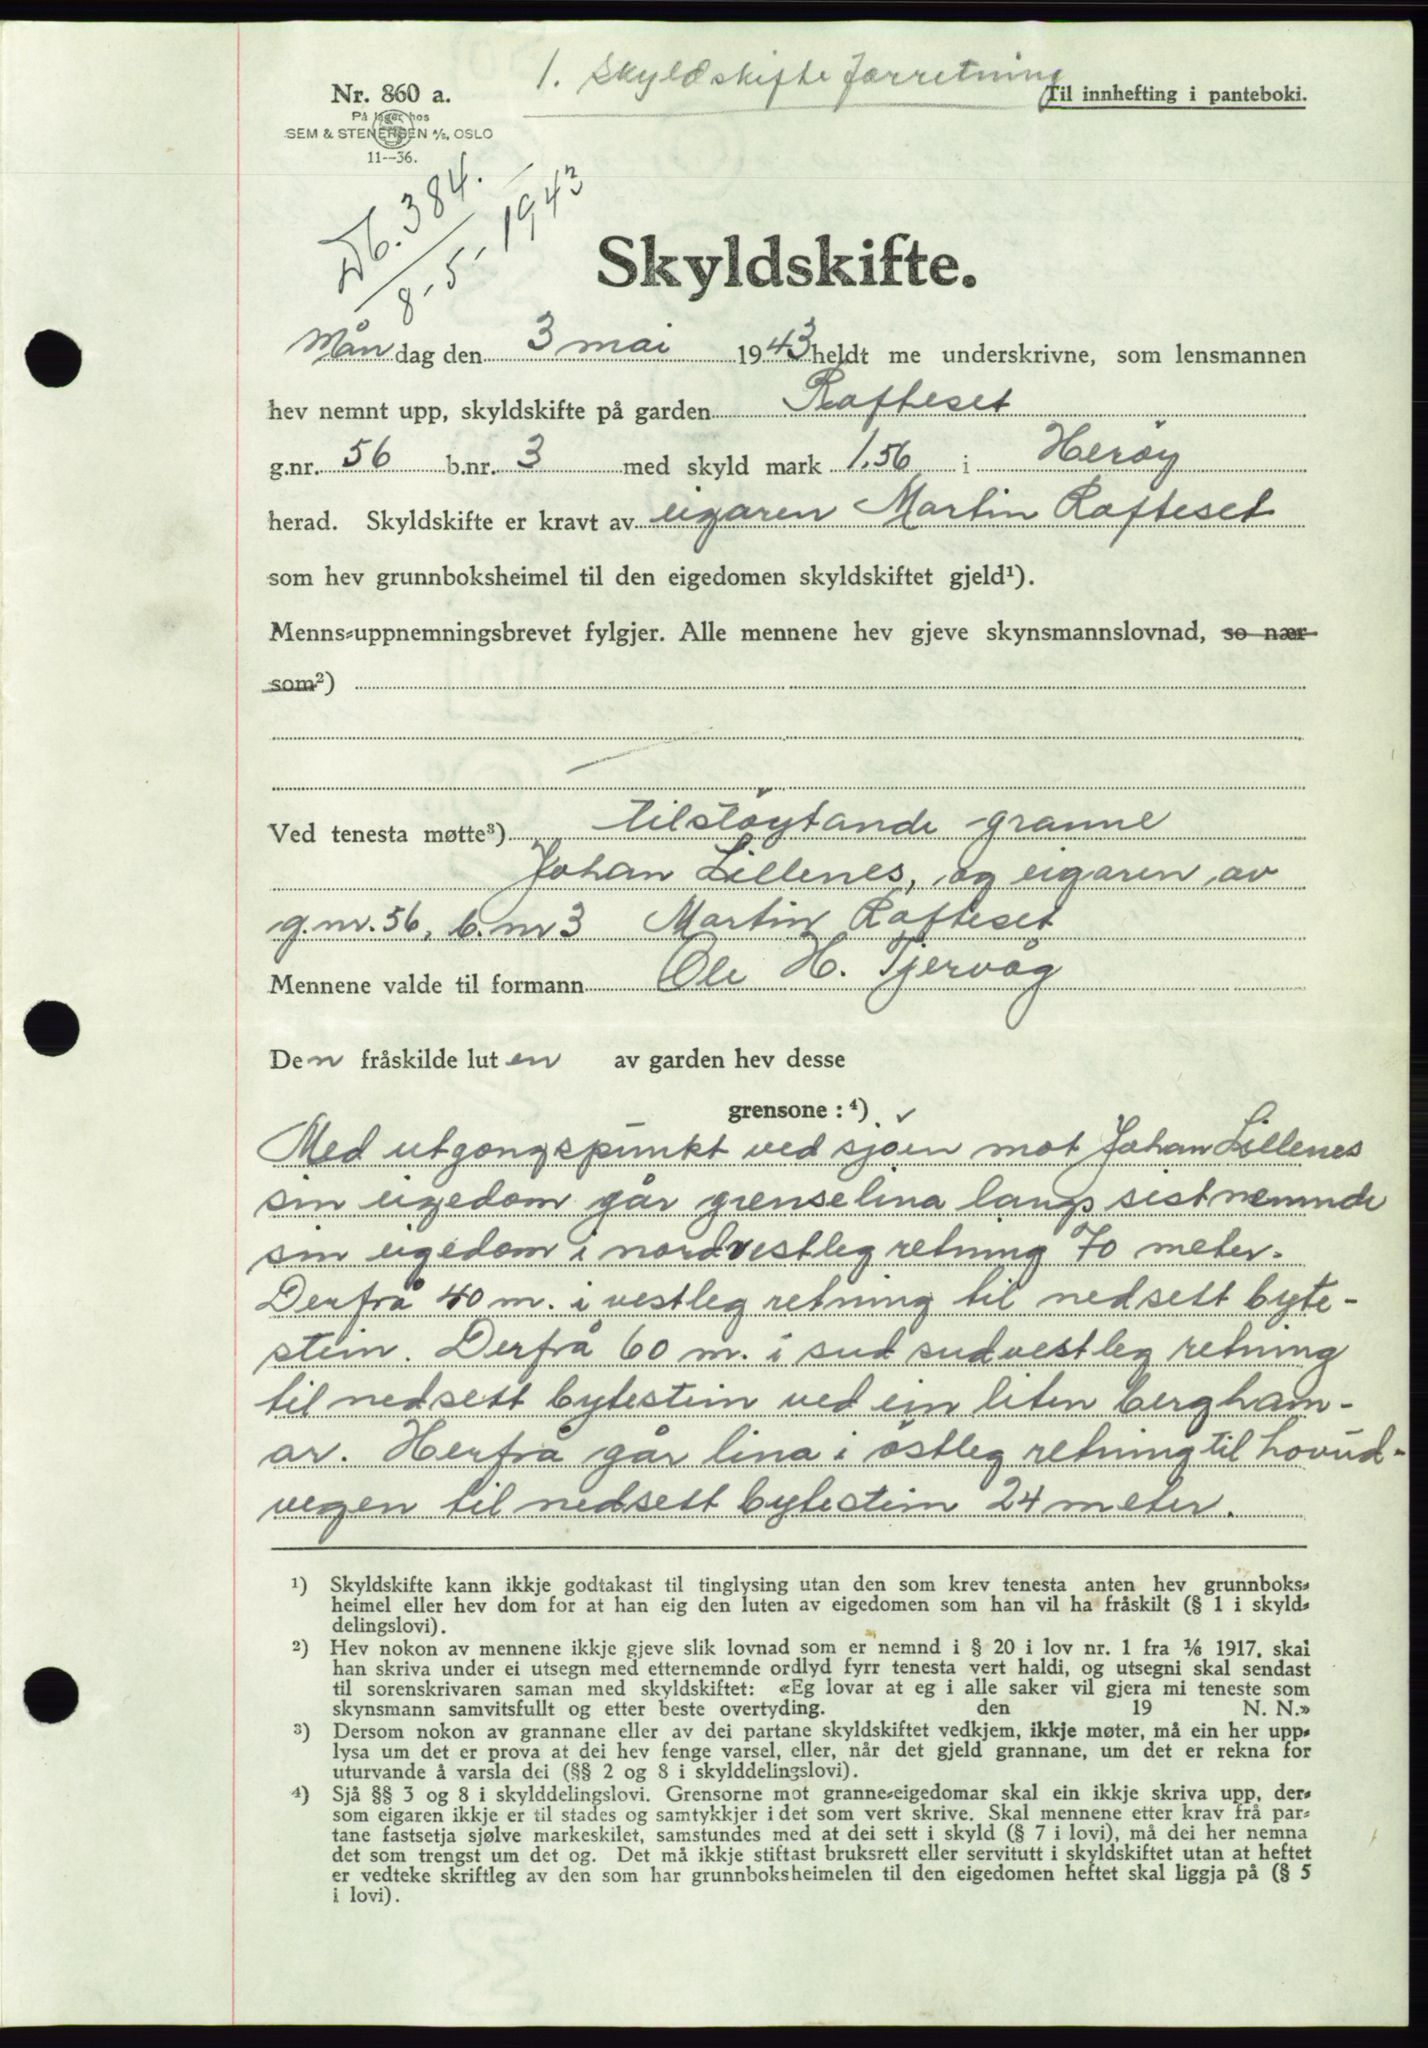 1. Skyldskifteforretning
Nr. 860 a.
Til innhefting i panteboki.
På lager hos
SEM & STENERSEN A/S, OSLO
11--36.
Db. 384.
8-5-1943
Skyldskifte.
Måndag den 3 mai 1943 heldt me underskrivne, som lensmannen
hev nemnt upp, skyldskifte på garden Rafteset
g.nr. 56 b.nr. 3 med skyld mark 1,56 i Herøy
herad. Skyldskifte er kravt av eigaren Martin Rafteset
som hev grunnboksheimel til den eigedomen skyldskiftet gjeld¹).
Menns-uppnemningsbrevet fylgjer. Alle mennene hev gjeve skynsmannslovnad, so nær
som²)
Ved tenesta møtte³) tilstøytande granne
Johan Lillenes, og eigaren av
g.nr. 56, b.nr 3 Martin Rafteset
Mennene valde til formann Ole H. Tjervåg
Den fråskilde luten av garden hev desse
grensone : ⁴)
Med utgongspunkt ved sjøen mot Johan Lillenes
sin eigedom går grenselina langs sistnemnde
sin eigedom i nordvestleg retning 70 meter.
Derfrå 40 m. i vestleg retning til nedsett byte-
stein. Derfrå 60 m. i sud sudvestleg retning
til nedsett bytestein ved ein liten bergham-
ar. Herfrå går lina i östleg retning til hovud-
vegen til nedsett bytestein 24 meter.
¹) Skyldskifte kann ikkje godtakast til tinglysing utan den som krev tenesta anten hev grunnboks-
heimel eller hev dom for at han eig den luten av eigedomen som han vil ha fråskilt (§ 1 i skyld-
delingslovi).
²) Hev nokon av mennene ikkje gjeve slik lovnad som er nemnd i § 20 i lov nr. 1 fra 1/6 1917, skal
han skriva under ei utsegn med etternemnde ordlyd fyrr tenesta vert haldi, og utsegni skal sendast
til sorenskrivaren saman med skyldskiftet: «Eg lovar at eg i alle saker vil gjera mi teneste som
skynsmann samvitsfullt og etter beste overtyding. den 19 N. N.»
³) Dersom nokon av grannane eller av dei partane skyldskiftet vedkjem, ikkje møter, må ein her upp-
lysa um det er prova at dei hev fenge varsel, eller, når det gjeld grannane, um det er rekna for
uturvande å varsla dei (§§ 2 og 8 i skylddelingslovi).
⁴) Sjå §§ 3 og 8 i skylddelingslovi. Grensorne mot granne-eigedomar skal ein ikkje skriva upp, der-
som eigaren ikkje er til stades og samtykkjer i det som vert skrive. Skal mennene etter krav frå par-
tane fastsetja sjølve markeskilet, samstundes med at dei sett i skyld (§ 7 i lovi), må dei her nemna
det som trengst um det og. Det må ikkje stiftast bruksrett eller servitutt i skyldskiftet utan at heftet
er vedteke skriftleg av den som har grunnboksheimelen til den eigedomen heftet skal liggja på (§ 5
i lovi).